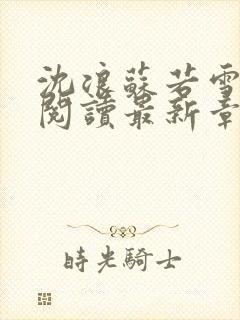 沈浪蘇若雪
閱讀最新章
時光騎士